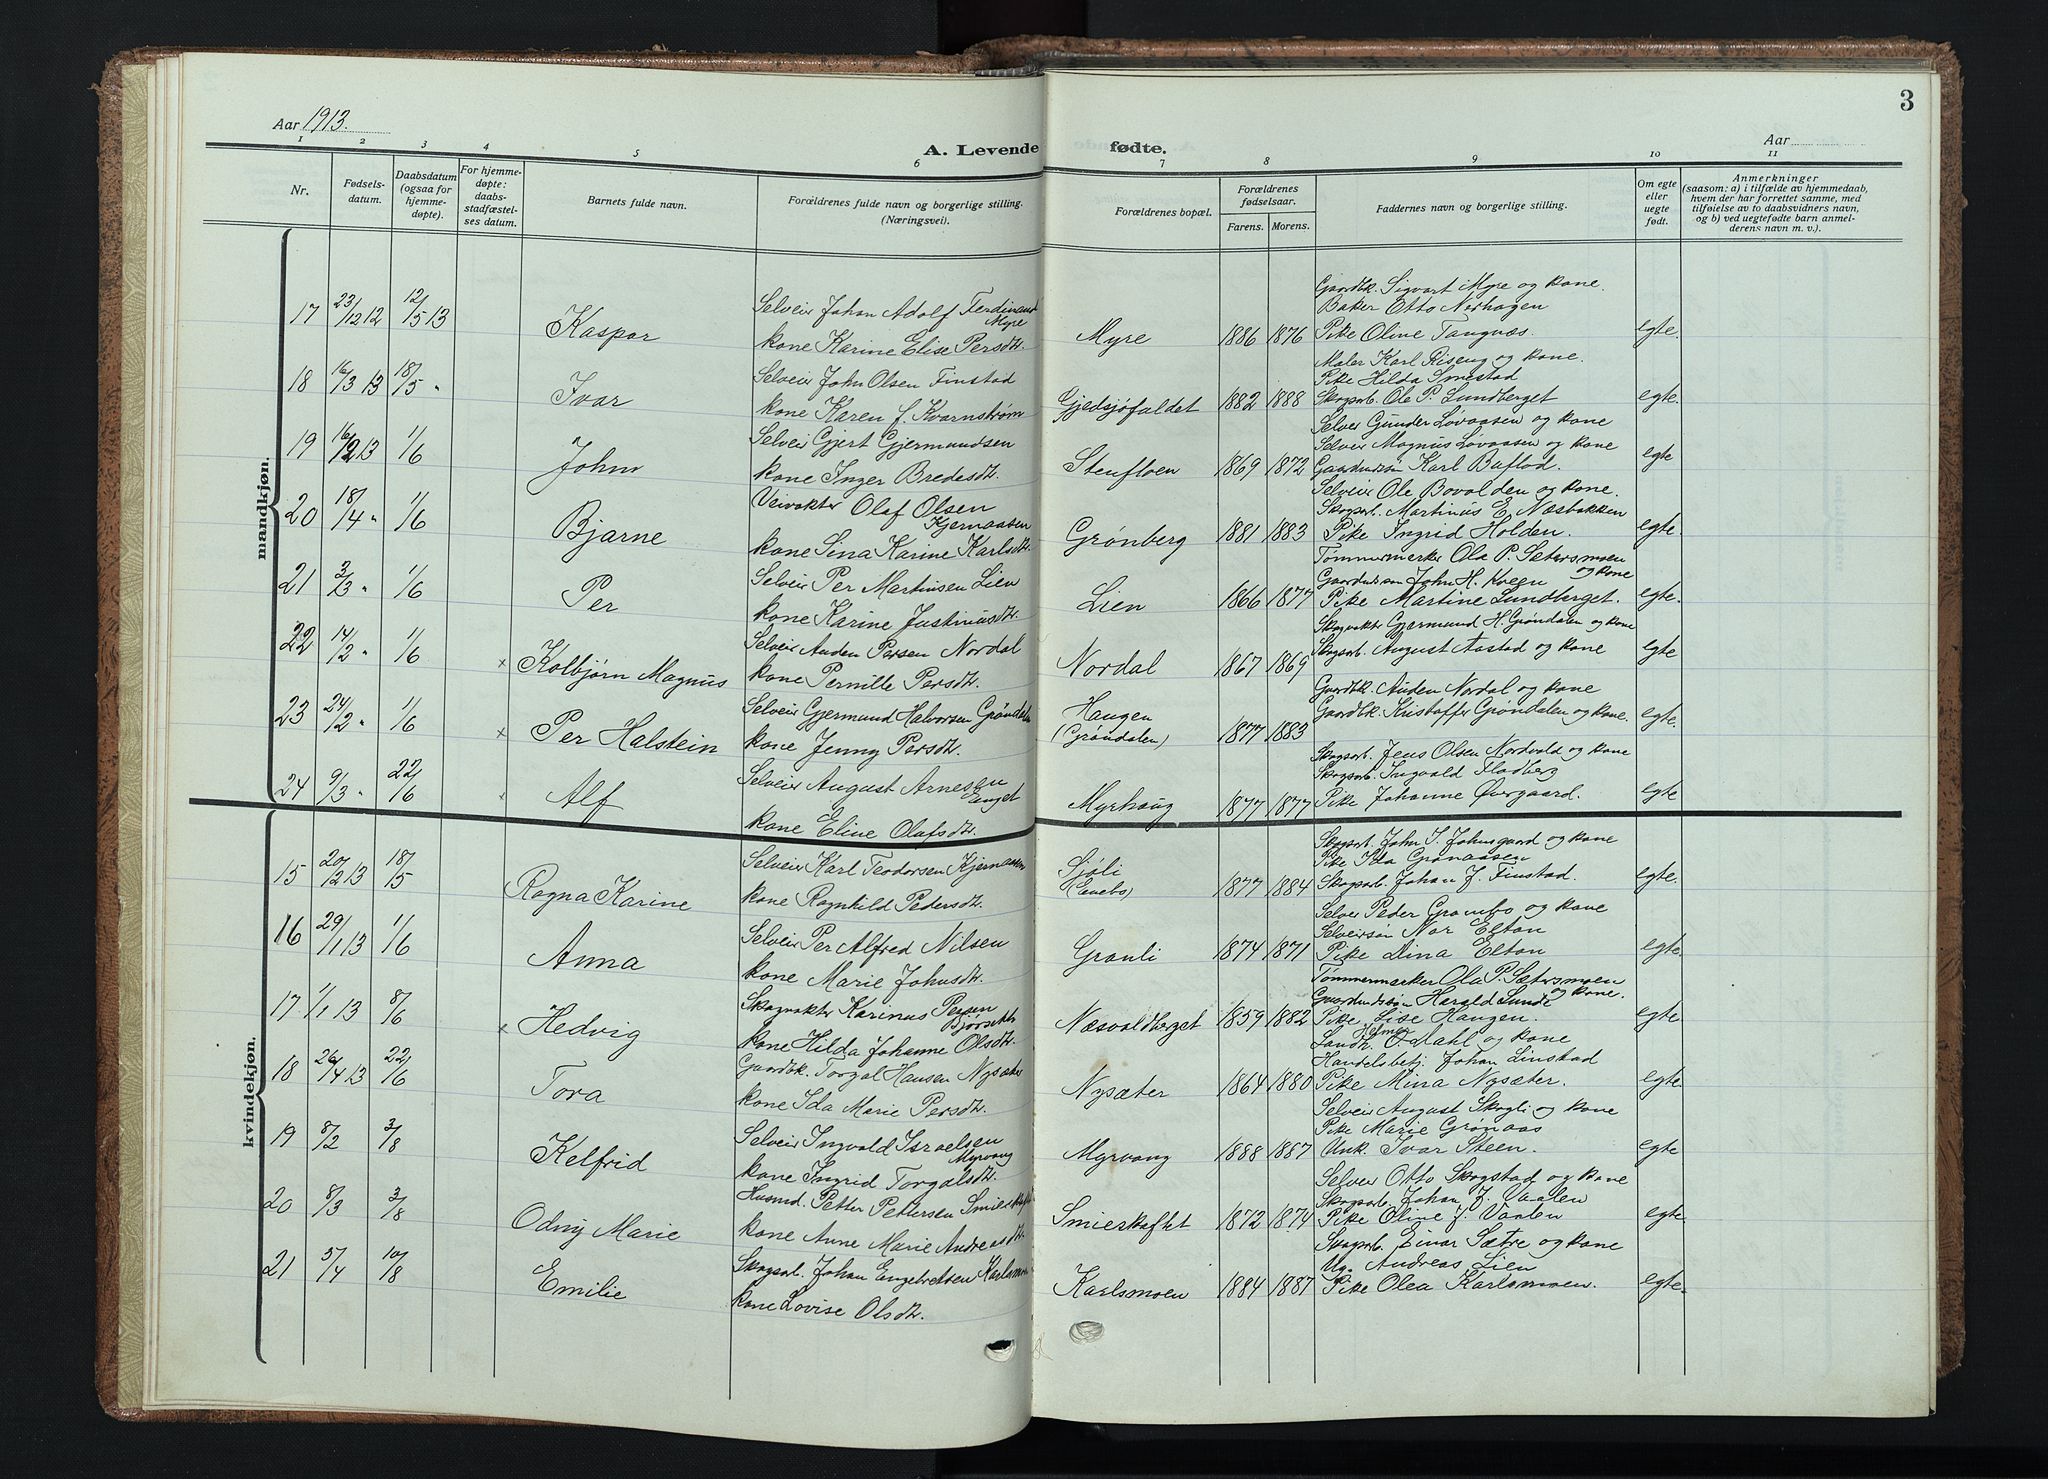 Aar 1913.
A. Levende fødte.
Aar
3
1 2 3 4 5 6 7 8 9 10 11
Nr.
Fødsels-
datum.
Daabsdatum
(ogsaa for
hjemme-
døpte).
For hjemme-
døpte:
daabs-
stadfæstel-
ses datum.
Barnets fulde navn.
Forældrenes fulde navn og borgerlige stilling.
(Næringsvei).
Forældrenes bopæl.
Forældrenes
fødselsaar.
Farens. Morens.
Faddernes navn og borgerlige stilling.
Om egte
eller
uegte
født.
Anmerkninger
(saasom: a) i tilfælde av hjemmedaab,
hvem der har forrettet samme, med
tilføielse av to daabsvidners navn,
og b) ved uegtefødte barn anmel-
derens navn m. v.).
mandkjøn.
17 23/12 12 12/5 13 Kaspar
Selveier Johan Adolf Ferdinand
Myre
kone Karine Elise Persdtr.
Myre 1886 1876
Gaardbr. Sigvart Myre og kone.
Baker Otto Nerhagen
Pike Oline Tangnæs. egte.
18 16/3 13 18/5 " Ivar
Selveier John Olsen Finstad
kone Karen f. Kvarnstrøm
Gjedsjøfaldet 1882 1888
Maler Karl Riseng og kone.
Pike Hilda Smestad
Skogsarb. Ole P. Lundberget egte.
19 16/2 13 1/6 John
Selveier Gjert Gjermundsen
kone Inger Bredesdtr.
Stenfloen 1869 1872
Selveier Gunder Løvaasen og kone
Selveier Magnus Løvaasen og kone
Gaardmdsøn Karl Buflod. egte
20 18/4 " 1/6 Bjarne
Veivokter Olaf Olsen
Kjernaasen
kone Sina Karine Karlsdtr.
Grønberg 1881 1883
Selveier Ole Bovalden og kone.
Skogsarb. Martinus E. Næsbakken
Pike Ingrid Holden. egte.
21 3/3 " 1/6 Per
Selveier Per Martinsen Lien
kone Karine Justinusdtr.
Lien 1866 1877
Tømmermerker Ola P. Sætersmoen
og kone
John H. Kveen
Pike Martine Lundberget. egte.
22 14/2 " 1/6 × Kolbjørn Magnus
Selveier Auden Persen Nordal
kone Pernille Persdtr.
Nordal 1867 1869
Skogvakter Gjermund H. Grøndalen og kone
Skogsarb. August Aastad og kone egte
23 24/2 " 1/6 × Per Halstein
Selveier Gjermund Halvorsen Grøndalen
kone Jenny Persdtr.
Haugen
(Grøndalen) 1877 1883
Gaardbr. Auden Nordal og kone
Gaardbr. Kristoffer Grøndalen og kone. egte.
24 9/3 " 22/6 × Alf
Selveier August Arnesen
Enget
kone Eline Olafsdtr.
Myrhaug 1877 1877
Skogsarb. Jens Olsen Nordvold og kone
Skogsarb. Ingvald Flodberg
Pike Johanne Øvergaard. egte
kvindekjøn.
15 20/2 13 18/5 Ragna Karine
Selveier Karl Teodorsen Kjernaasen
kone Ragnhild Pedersdtr.
Sjøli
(Enebo) 1877 1884
Skogsarb. John S. Johnsgaard og kone
Pike Ida Grønaasen
Skogsarb. Johan J. Finstad. egte.
16 29/1 13 1/6 Anna
Selveier Per Alfred Nilsen
kone Marie Johnsdtr.
Granli 1874 1871
Selveier Peder Granbo og kone
Selveiersøn Nor Elton
Pike Dina Elton egte.
17 1/1 13 8/6 × Hedvig
Skogvakter Karinus Persen
Bjørseth
kone Hilda Johanne Olsdtr.
Næsvoldberget 1859 1882
Tømmermerker Ola P. Sætersmoen
og kone.
Gaardmdsøn Harald Sunde
Pike Lise Haugen. egte.
18 26/4 13 22/6 Tora
Gaardbr. Torgal Hansen Nysæter
kone Ida Marie Persdtr.
Nysæter 1864 1880
Landh. Helmer O. Dahl og kone
Handelsbetj. Johan Linstad
Pike Mina Nysæter. egte
19 8/2 3/8 Kelfrid
Selveier Ingvald Israelsen
Myrvang
kone Ingrid Torgalsdtr.
Myrvang 1888 1887
Selveier August Skogli og kone
Pike Marie Grønaas
Unk. Ivar Steen. egte
20 8/3 3/8 Odny Marie
Husmd. Petter Pettersen Smierkaftet
kone Anne Marie Andreasdtr.
Smierkaftet 1872 1874
Selveier Otto Skogstad og kone
Skogsarb. Johan J. Vaalen
Pike Oline J. Vaalen egte.
21 5/4 10/8 Emilie
Skogsarb. Johan Engebretsen Karlsmoen
kone Lovise Olsdtr.
Karlsmoen 1884 1887
Skogsarb. Einar Sætre og kone
Ug. Andreas Lien
Pike Olea Karlsmoen. egte.